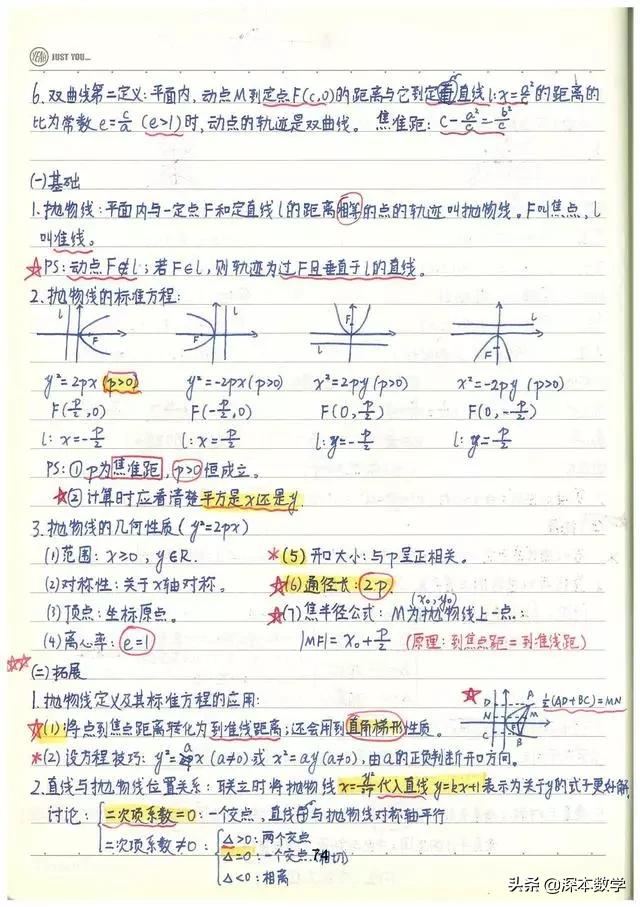 YEAH JUST YOU...
6.双曲线第二定义:平面内,动点M到定点F(c,0)的距离与它到定直线l:x=a²/c的距离的
比为常数e=c/a (e>1)时,动点的轨迹是双曲线。 焦准距: c-a²/c=b²/c
(一)基础
1.抛物线:平面内与一定点F和定直线l的距离相等的点的轨迹叫抛物线。F叫焦点,l
叫准线。
☆PS:动点F∉l;若F∈l,则轨迹为过F且垂直于l的直线。
2.抛物线的标准方程:
l F l F F l l F
y²=2px (p>0) y²=-2px(p>0) x²=2py(p>0) x²=-2py (p>0)
F(p/2,0) F(-p/2,0) F(0,p/2) F(0,-p/2)
l: x=-p/2 l: x=p/2 l: y=-p/2 l: y=p/2
PS:①p为焦准距,p>0恒成立。
☆②计算时应看清楚平方是x还是y.
3.抛物线的几何性质(y²=2px)
(1)范围: x≥0, y∈R. *(5)开口大小:与p呈正相关。
(2)对称性:关于x轴对称。 ☆(6)通径长:2p.
(3)顶点:坐标原点。 ☆(7)焦半径公式:M(x₀,y₀)为抛物线上一点:
(4)离心率: e=1 |MF|=x₀+p/2 (原理:到焦点距=到准线距)
☆☆(二)拓展
1.抛物线定义及其标准方程的应用: ☆ D N C A M F B ½(AD+BC)=MN
☆(1)将点到焦点距离转化为到准线距离;还会用到直角梯形性质。
*(2)设方程技巧: y²=ax (a≠0)或 x²=ay(a≠0),由a的正负判断开口方向。
2.直线与抛物线位置关系:联立时将抛物线 x=y²/2p代入直线 y=kx+1表示为关于y的式子更好解
讨论: 二次项系数=0:一个交点,直线与抛物线对称轴平行
二次项系数≠0: △>0:两个交点
△=0:一个交点,相切
△<0:相离
头条 @深本数学